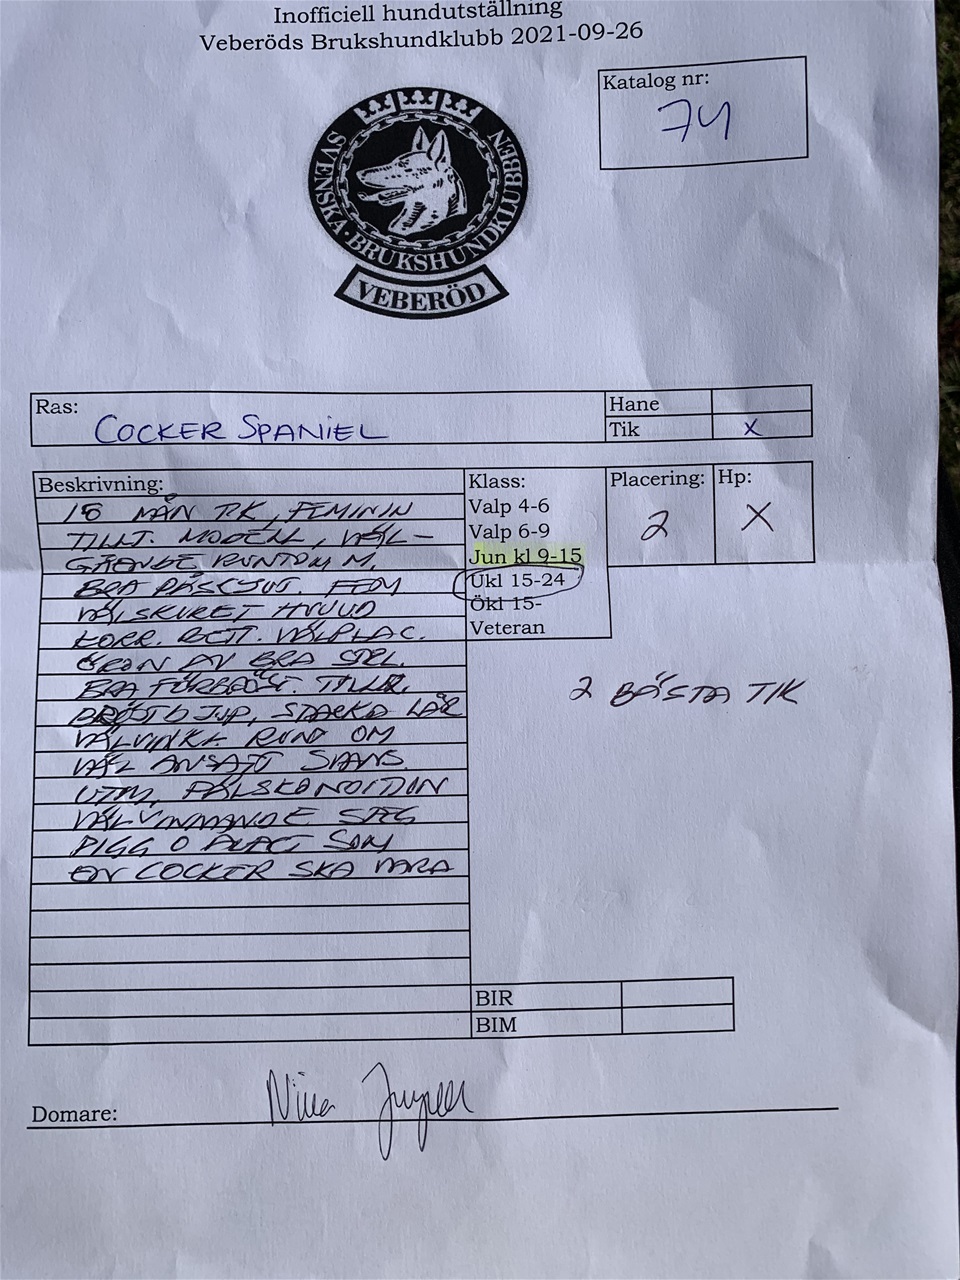 Inofficiell hundutställning
Veberöds Brukshundklubb 2021-09-26
Katalog nr:
74
SVENSKA · BRUKSHUNDKLUBBEN
VEBERÖD
Ras:
COCKER SPANIEL
Hane
Tik X
Beskrivning:
18 MÅN TIK, FEMININ
TILLT. MODELL, VÄL-
GÅENDE RUNTOM M.
BRA PÄLSLJUS. FEM
VÄLSKURET HUVUD
KORR. BETT. VÄLPLAC.
ÖRON AV BRA STRL.
BRA FÖRBRÖST. TILLR.
BRÖSTDJUP, STARKA LÅR
VÄLVINKL RUND OM
VÄL ANSATT SVANS
UTM. PÄLSKONDITION
VÄLVINNANDE STEG
PIGG O ALERT SOM
EN COCKER SKA VARA
Klass:
Valp 4-6
Valp 6-9
Jun kl 9-15
Ukl 15-24
Ökl 15-
Veteran
Placering:
2
Hp:
X
2 BÄSTA TIK
BIR
BIM
Domare:
Nina